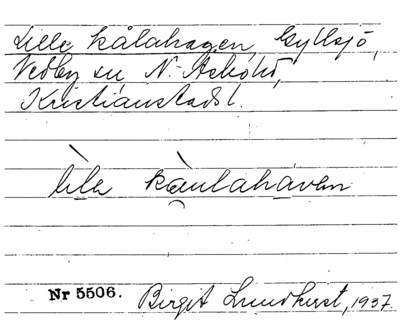 Lille kålahagen, Gyllsjö,
Vedby sn, N. Åsbo hd,
Kristianstads l.
lila kaulahaven
Nr 5506. Birgit Lundkvist, 1937.